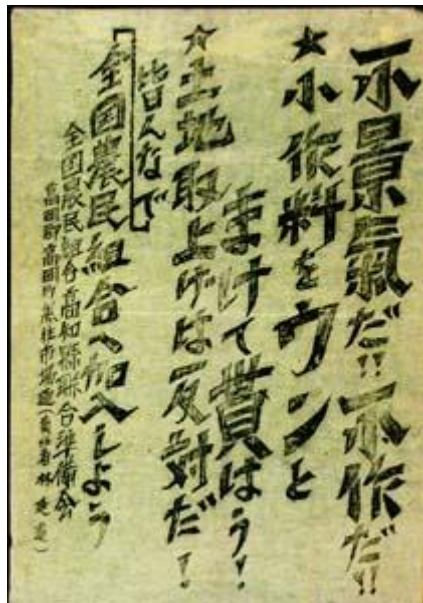 不景氣だ!!不作だ!!
☆小作料をウンと
まけて貰はう!
☆土地取上げは反対だ!
皆んなで
全国農民組合へ加入しよう
全国農民組合高知縣聯合準備会
高岡郡高岡町